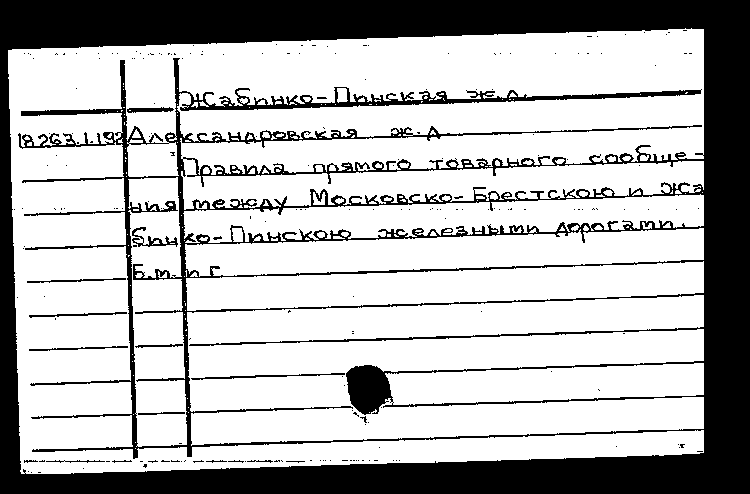 Жабинко-Пинская ж.д.
18.263.1.192 Александровская ж.д
Правила прямого товарного сообще-
ния между Московско-Брестскою и Жа
бинко-Пинскою железными дорогами.
Б.м. и г